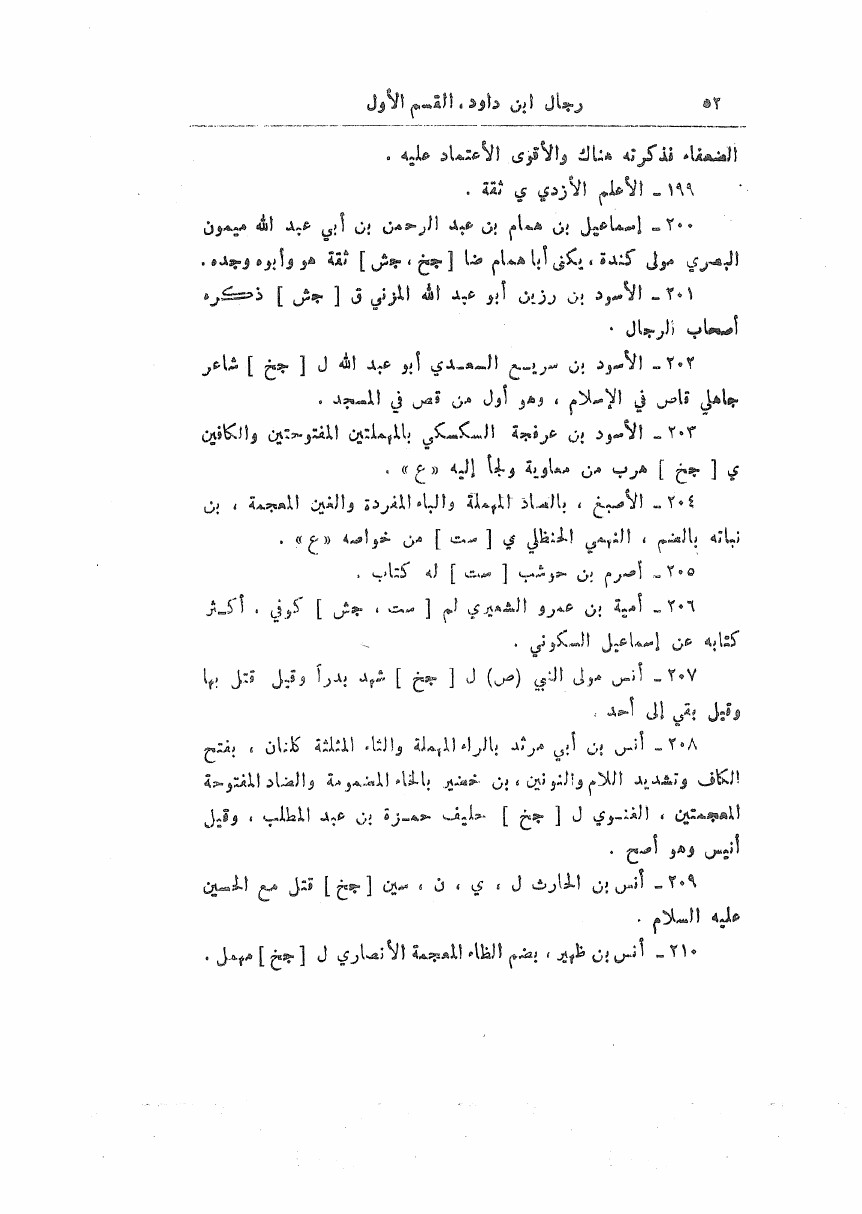 ٥٢ رجال ابن داود، القسم الأول
الضعفاء فذكرته هناك والأقوى الأعتماد عليه .
١٩٩ ـ الأعلم الأزدي ي ثقة .
٢٠٠ ـ إسماعيل بن همام بن عبد الرحمن بن أبي عبد الله ميمون
البصري مولى كندة ، يكنى أبا همام ضا [ جخ ، جش ] ثقة هو وأبوه وجده .
٢٠١ ـ الأسود بن رزين أبو عبد الله المزني ق [ جش ] ذكره
أصحاب الرجال .
٢٠٢ ـ الأسود بن سريع السعدي أبو عبد الله ل [ جخ ] شاعر
جاهلي قاص في الإسلام ، وهو أول من قص في المسجد .
٢٠٣ ـ الأسود بن عرفجة السكسكي بالمهملتين المفتوحتين والكافين
ي [ جخ ] هرب من معاوية ولجأ إليه «ع» .
٢٠٤ ـ الأصبغ ، بالصاد المهملة والباء المفردة والغين المعجمة ، بن
نباته بالضم ، التهمي الحنظلي ي [ ست ] من خواصه «ع» .
٢٠٥ ـ أصرم بن حوشب [ ست ] له كتاب .
٢٠٦ ـ أمية بن عمرو الشعيري لم [ ست ، جش ] كوفي ، أكثر
كتابه عن إسماعيل السكوني .
٢٠٧ ـ أنس مولى النبي (ص) ل [ جخ ] شهد بدراً وقيل قتل بها
وقيل بقي إلى أحد .
٢٠٨ ـ أنس بن أبي مرثد بالراء المهملة والثاء المثلثة كلنان ، بفتح
الكاف وتشديد اللام والنونين ، بن خضير بالخاء المضمومة والضاد المفتوحة
المعجمتين ، الغنوي ل [ جخ ] حليف حمزة بن عبد المطلب ، وقيل
أنيس وهو أصح .
٢٠٩ ـ أنس بن الحارث ل ، ي ، ن ، سين [ جخ ] قتل مع الحسين
عليه السلام .
٢١٠ ـ أنس بن ظهير ، بضم الظاء المعجمة الأنصاري ل [ جخ ] مهمل .